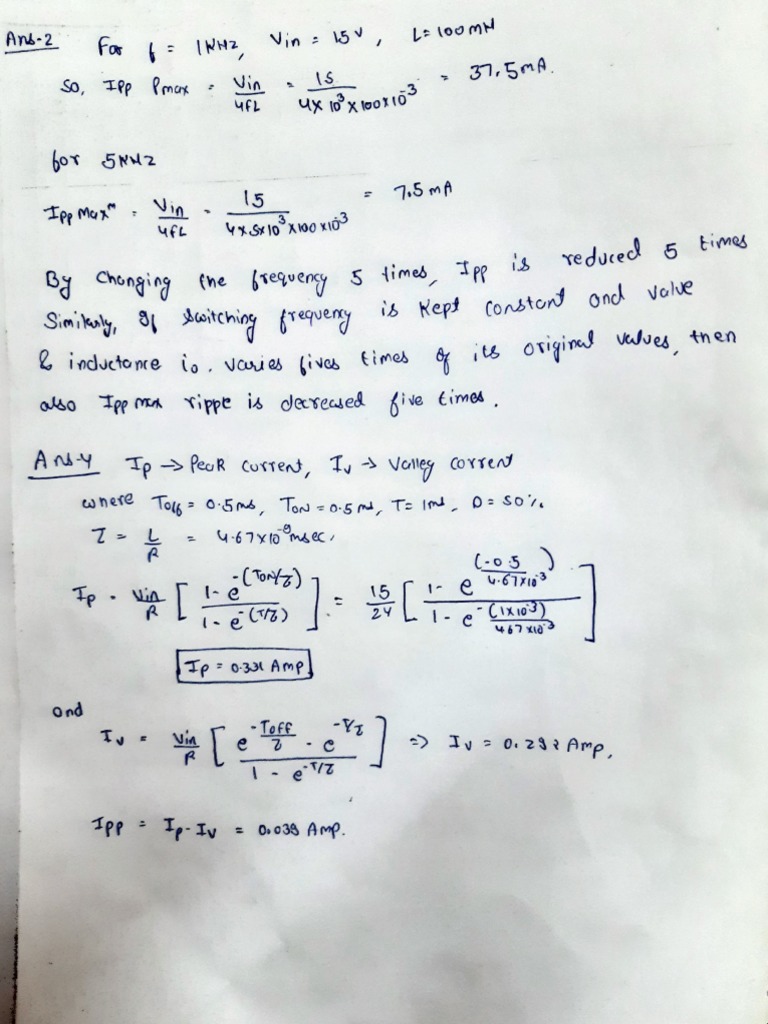 Ans-2 For f = 1KHz, Vin = 15V, L = 100mH
So, Ipp Pmax = Vin/4fL = 15/(4×10³×100×10⁻³) = 37.5mA.
for 5KHz
Ipp Maxᵐ = Vin/4fL = 15/(4×5×10³×100×10⁻³) = 7.5 mA
By changing the frequency 5 times, Ipp is reduced 5 times
Similarly, If switching frequency is kept constant and value
& inductance is. varies fives times of its original values, then
also Ipp max ripple is decreased five times.
Ans-4 Ip → Peak current, Iv → Valley corrent
where Toff = 0.5ms, TON = 0.5ms, T = 1ms, D = 50%.
τ = L/R = 4.67×10⁻⁹ msec.
Ip = Vin/R [ (1 - e^-(TON/τ)) / (1 - e^-(T/τ)) ] = 15/24 [ (1 - e^(-0.5/4.67×10⁻³)) / (1 - e^-((1×10⁻³)/467×10⁻³)) ]
Ip = 0.331 Amp
and
Iv = Vin/R [ (e^-Toff/τ - e^-T/τ) / (1 - e^-T/τ) ] => Iv = 0.292 Amp.
Ipp = Ip - Iv = 0.039 Amp.